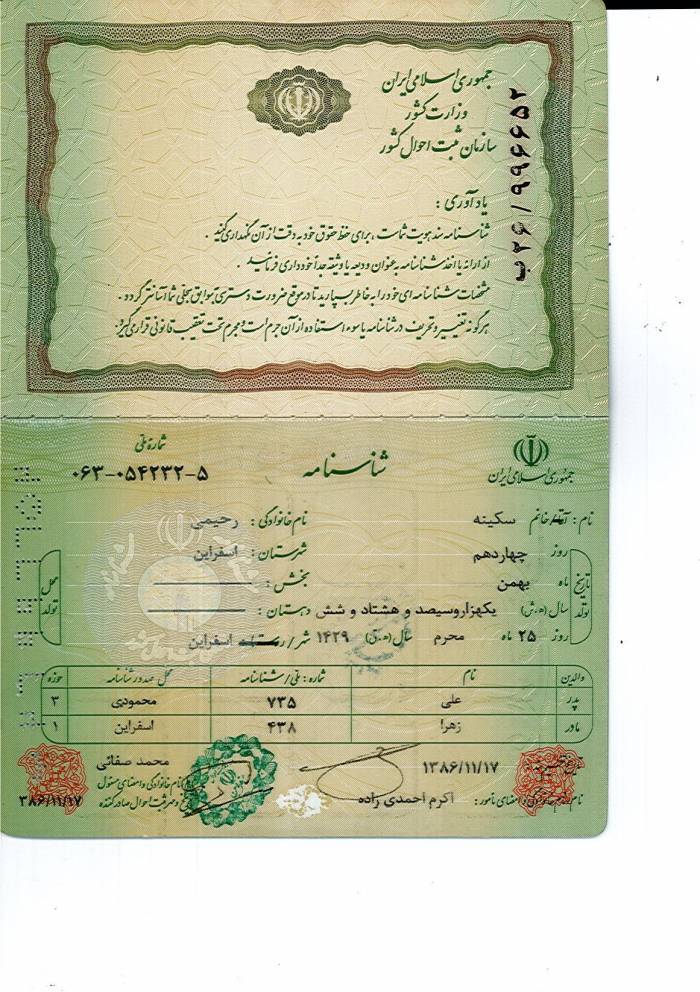 جمهوری اسلامی ایران
وزارت کشور
سازمان ثبت احوال کشور
ب۲۶/۹۹۶۶۵۲
یادآوری :
شناسنامه سند هویت شماست ، برای حفظ حقوق خود به دقت از آن نگهداری کنید .
از ارائه یا اخذ شناسنامه به عنوان ودیعه یا وثیقه جداً خودداری فرمائید .
مشخصات شناسنامه ای خود را به خاطر بسپارید تا در موقع ضرورت دسترسی به سوابق سجلی شما آسانتر گردد .
هرگونه تغییر و تحریف در شناسنامه یا سوء استفاده از آن جرم است و مجرم تحت تعقیب قانونی قرار می گیرد .
جمهوری اسلامی ایران
شناسنامه
شماره ملی
۰۶۳-۰۵۴۲۳۲-۵
نام : آقا/خانم سکینه نام خانوادگی : رحیمی
تاریخ تولد
روز چهاردهم شهرستان : اسفراین
ماه بهمن بخش :
سال (ه.ش) یکهزاروسیصد و هشتاد و شش دهستان :
روز ۲۵ ماه محرم سال (ه.ق) ۱۴۲۹ شهر/ اسفراین
محل تولد
والدین نام شماره : ملی/شناسنامه محل صدور شناسنامه حوزه
پدر علی ۷۳۵ محمودی ۳
مادر زهرا ۴۳۸ اسفراین ۱
۱۳۸۶/۱۱/۱۷ محمد صفائی
نام خانوادگی و امضای مسئول
نام و نام خانوادگی و امضای مأمور : اکرم احمدی زاده
و مهر ثبت احوال صادر کننده
۱۳۸۶/۱۱/۱۷